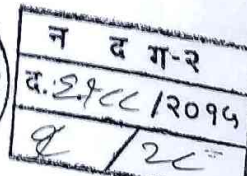 न द ग-२
द.:६९८८/२०१५
१/२८